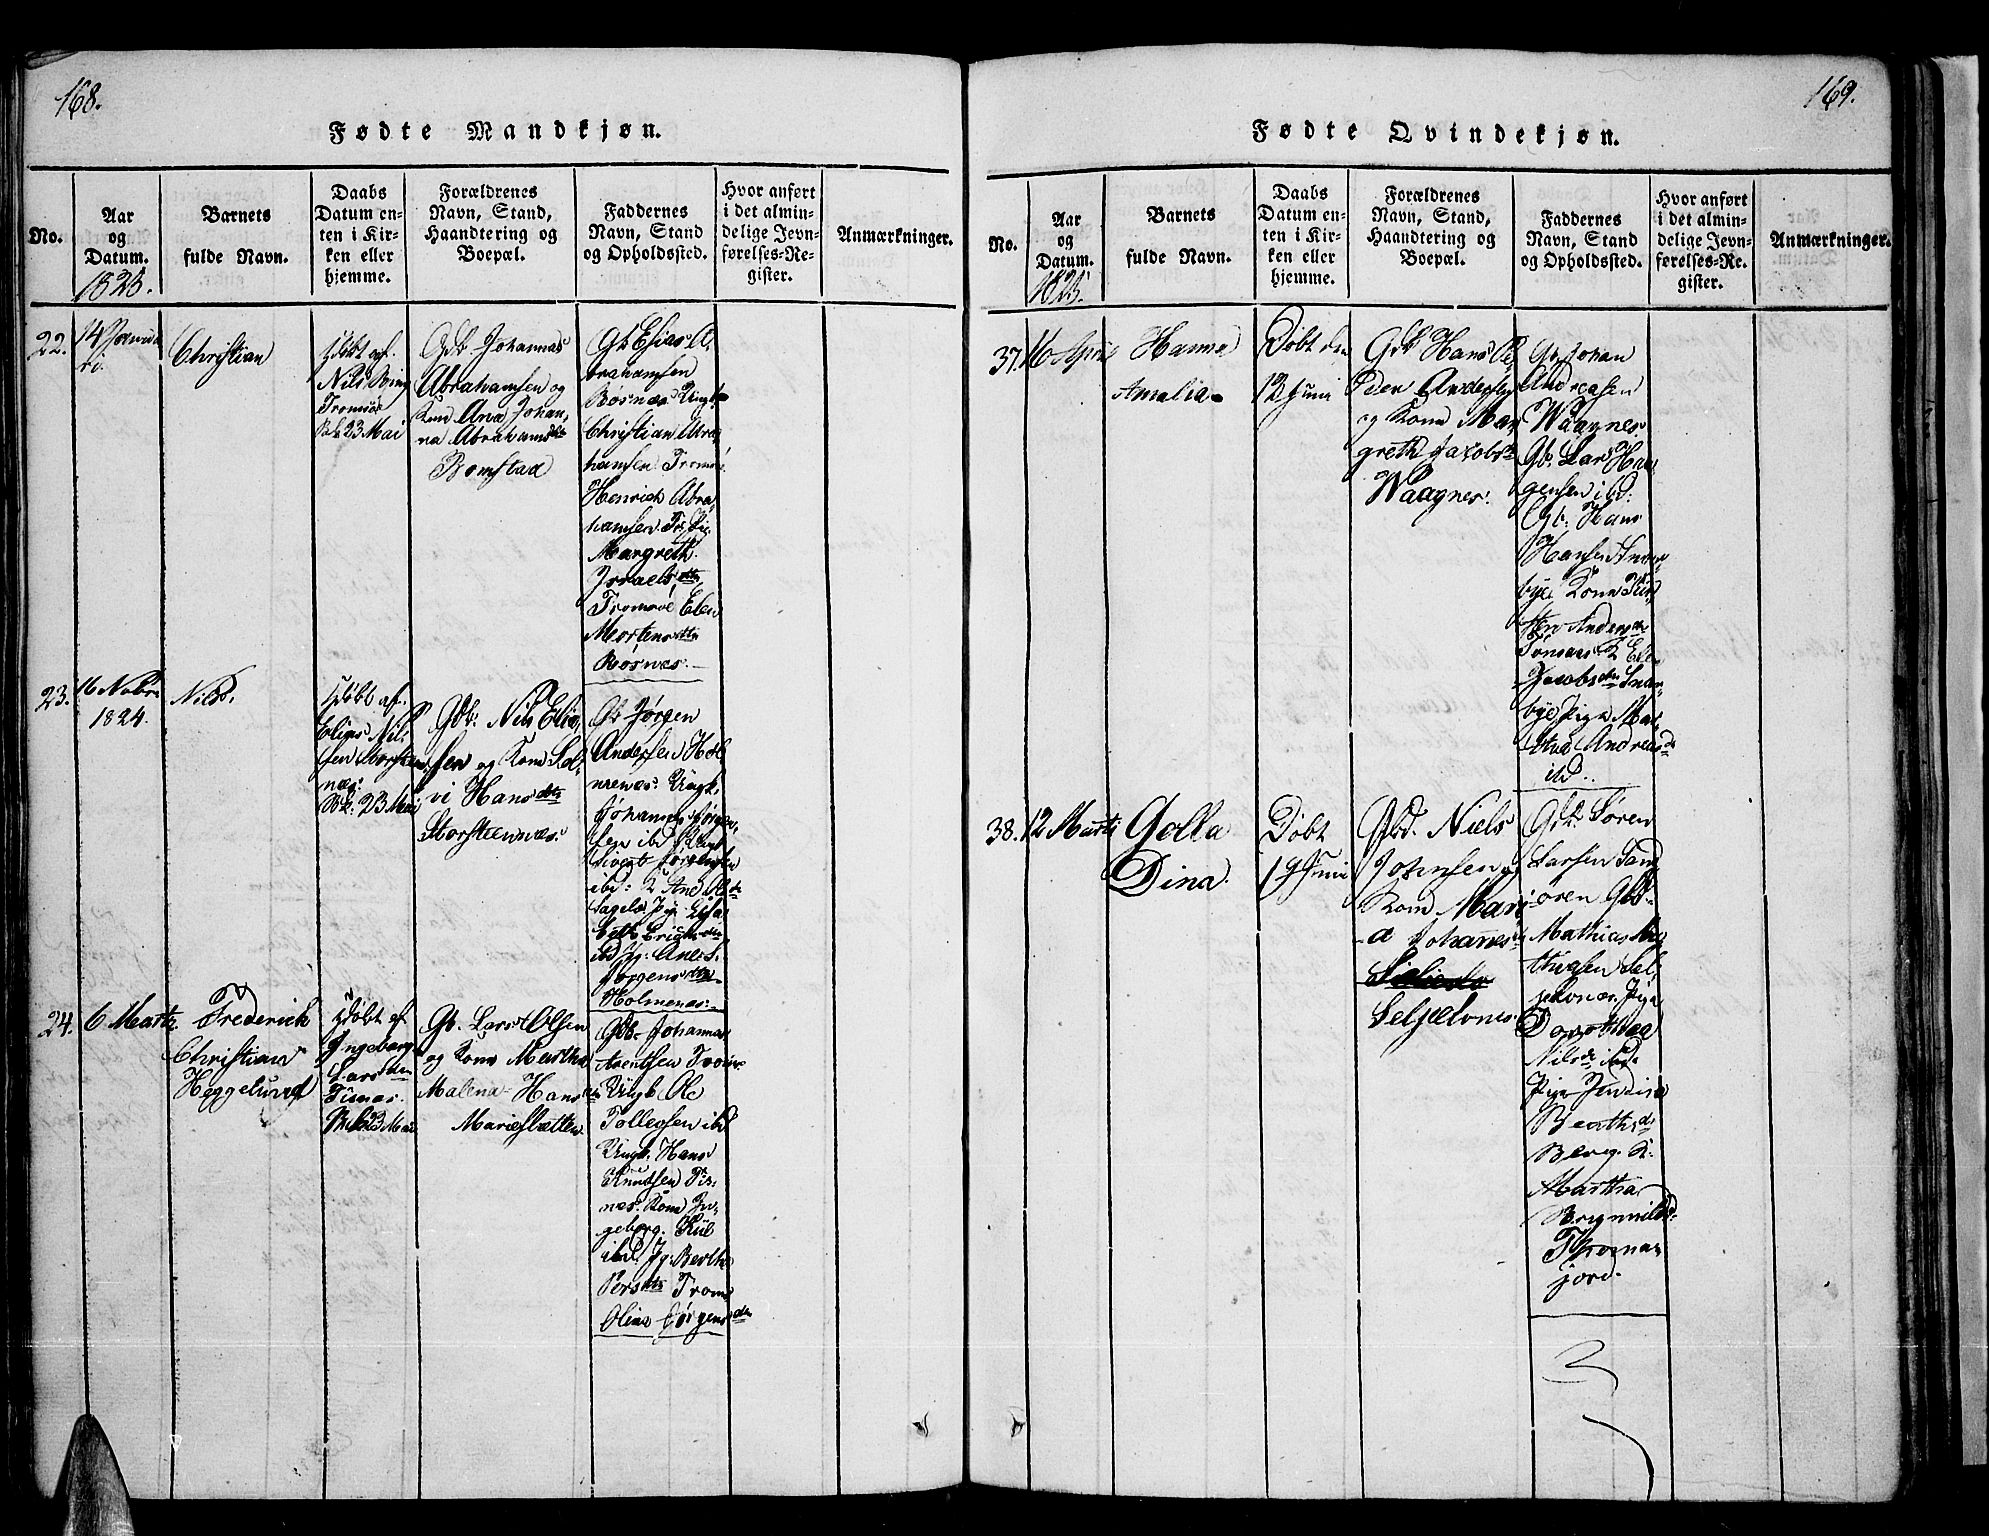 168.
Fødte Mandkjøn.
No.
Aar
og
Datum.
1825.
Barnets
fulde Navn.
Daabs
Datum en-
ten i Kir-
ken eller
hjemme.
Forældrenes
Navn, Stand,
Haandtering og
Boepæl.
Faddernes
Navn, Stand
og Opholdssted.
Hvor anført
i det almin-
delige Jevn-
førelses-Re-
gister.
Anmærkninger.
22.
14 Janua
ri
Christian
Hdøbt af
Nils
Tromsøe
Bk 23 Mai
Gdb Johannas
Abrahamsen og
Kone Ana Johan,
na Abrahamsdtr
Bomstad
Gb Esias A,
brahamsen
Røsnæs Ungk
Christian Abra,
hamsen Tromsø.
Henrich Abra,
hamsen Pig
Margreth
Israelsdtr,
Tromsøe Elen
Mortensdtr
Røsnæs.
23.
16 Nobr
1824.
Nils.
Hdøbt af
Elias Nil,
sen Storsteen,
næs.
Bk: 23 Mai
Gdb: Nils Elia,
sen og Kone Sol,
vi Hansdtr
Storsteennæs.
Gb Jørgen
Andersen Hol,
menæs: Ungk.
Johannes Jørgen,
sen ibd Ungk
Sivert Jørgensen
ibd: K Ane
Pige Elisa,
beth
ibd Pg: Ane
Jørgensdtr
Holmenæs.
24.
6 Marti
Frederich
Christian
Heggelund
Hdøbt af
Ingeborg
Larsdtr
Tisnæs.
Bk 23 Mai
Gb. Lars Olsen
og Kone Martha
Malena Hansdtr
Marieslætten
Gdb. Johannes
Arentsen
Ungk Ole
Tollefsen ibd
Ungk. Hans
Knudsen Tis,
næs. Kone In,
geborg
ibd. Pg: Berthe
Persdtr Troms
Olina Jørgensdtr
169.
Fødte Qvindekjøn.
No.
Aar
og
Datum.
1825.
Barnets
fulde Navn.
Daabs
Datum en-
ten i Kir-
ken eller
hjemme.
Forældrenes
Navn, Stand,
Haandtering og
Boepæl.
Faddernes
Navn, Stand
og Opholdssted.
Hvor anført
i det almin-
delige Jevn-
førelses-Re-
gister.
Anmærkninger.
37.
16 April
Hanna
Amalia
Døbt den
12 Juni
Gdb Hans Pe,
der Andersen
og Kone Mar,
greth Jacobsdtr
Waagnes.
Gb. Johan
Andreasen
Waagnes
Gb. Lars Haa,
gensen ibd:
Gb. Hans
Hansen Snar,
bye Kone Kir,
sten Andersdtr
Tønsaas K Ele
Jacobsdtr Snar,
bye Pige Mar,
tha Andreasd
ibd.
38.
12 Marti
Golla
Dina.
Døbt
19 Juni
Gbd. Niels
Johnsen og
Kone Mari
a Johannesd
Seljelvnes
Gdb. Søren
Larsen Tand,
oren Gbd.
Mathias Ma,
thisen Sel,
jelvnæs. Pige
Dorothea
Nilsd ibd.
Pige
Berthed
Berg. K.
Martha
Brynnild
Thomas,
jord.